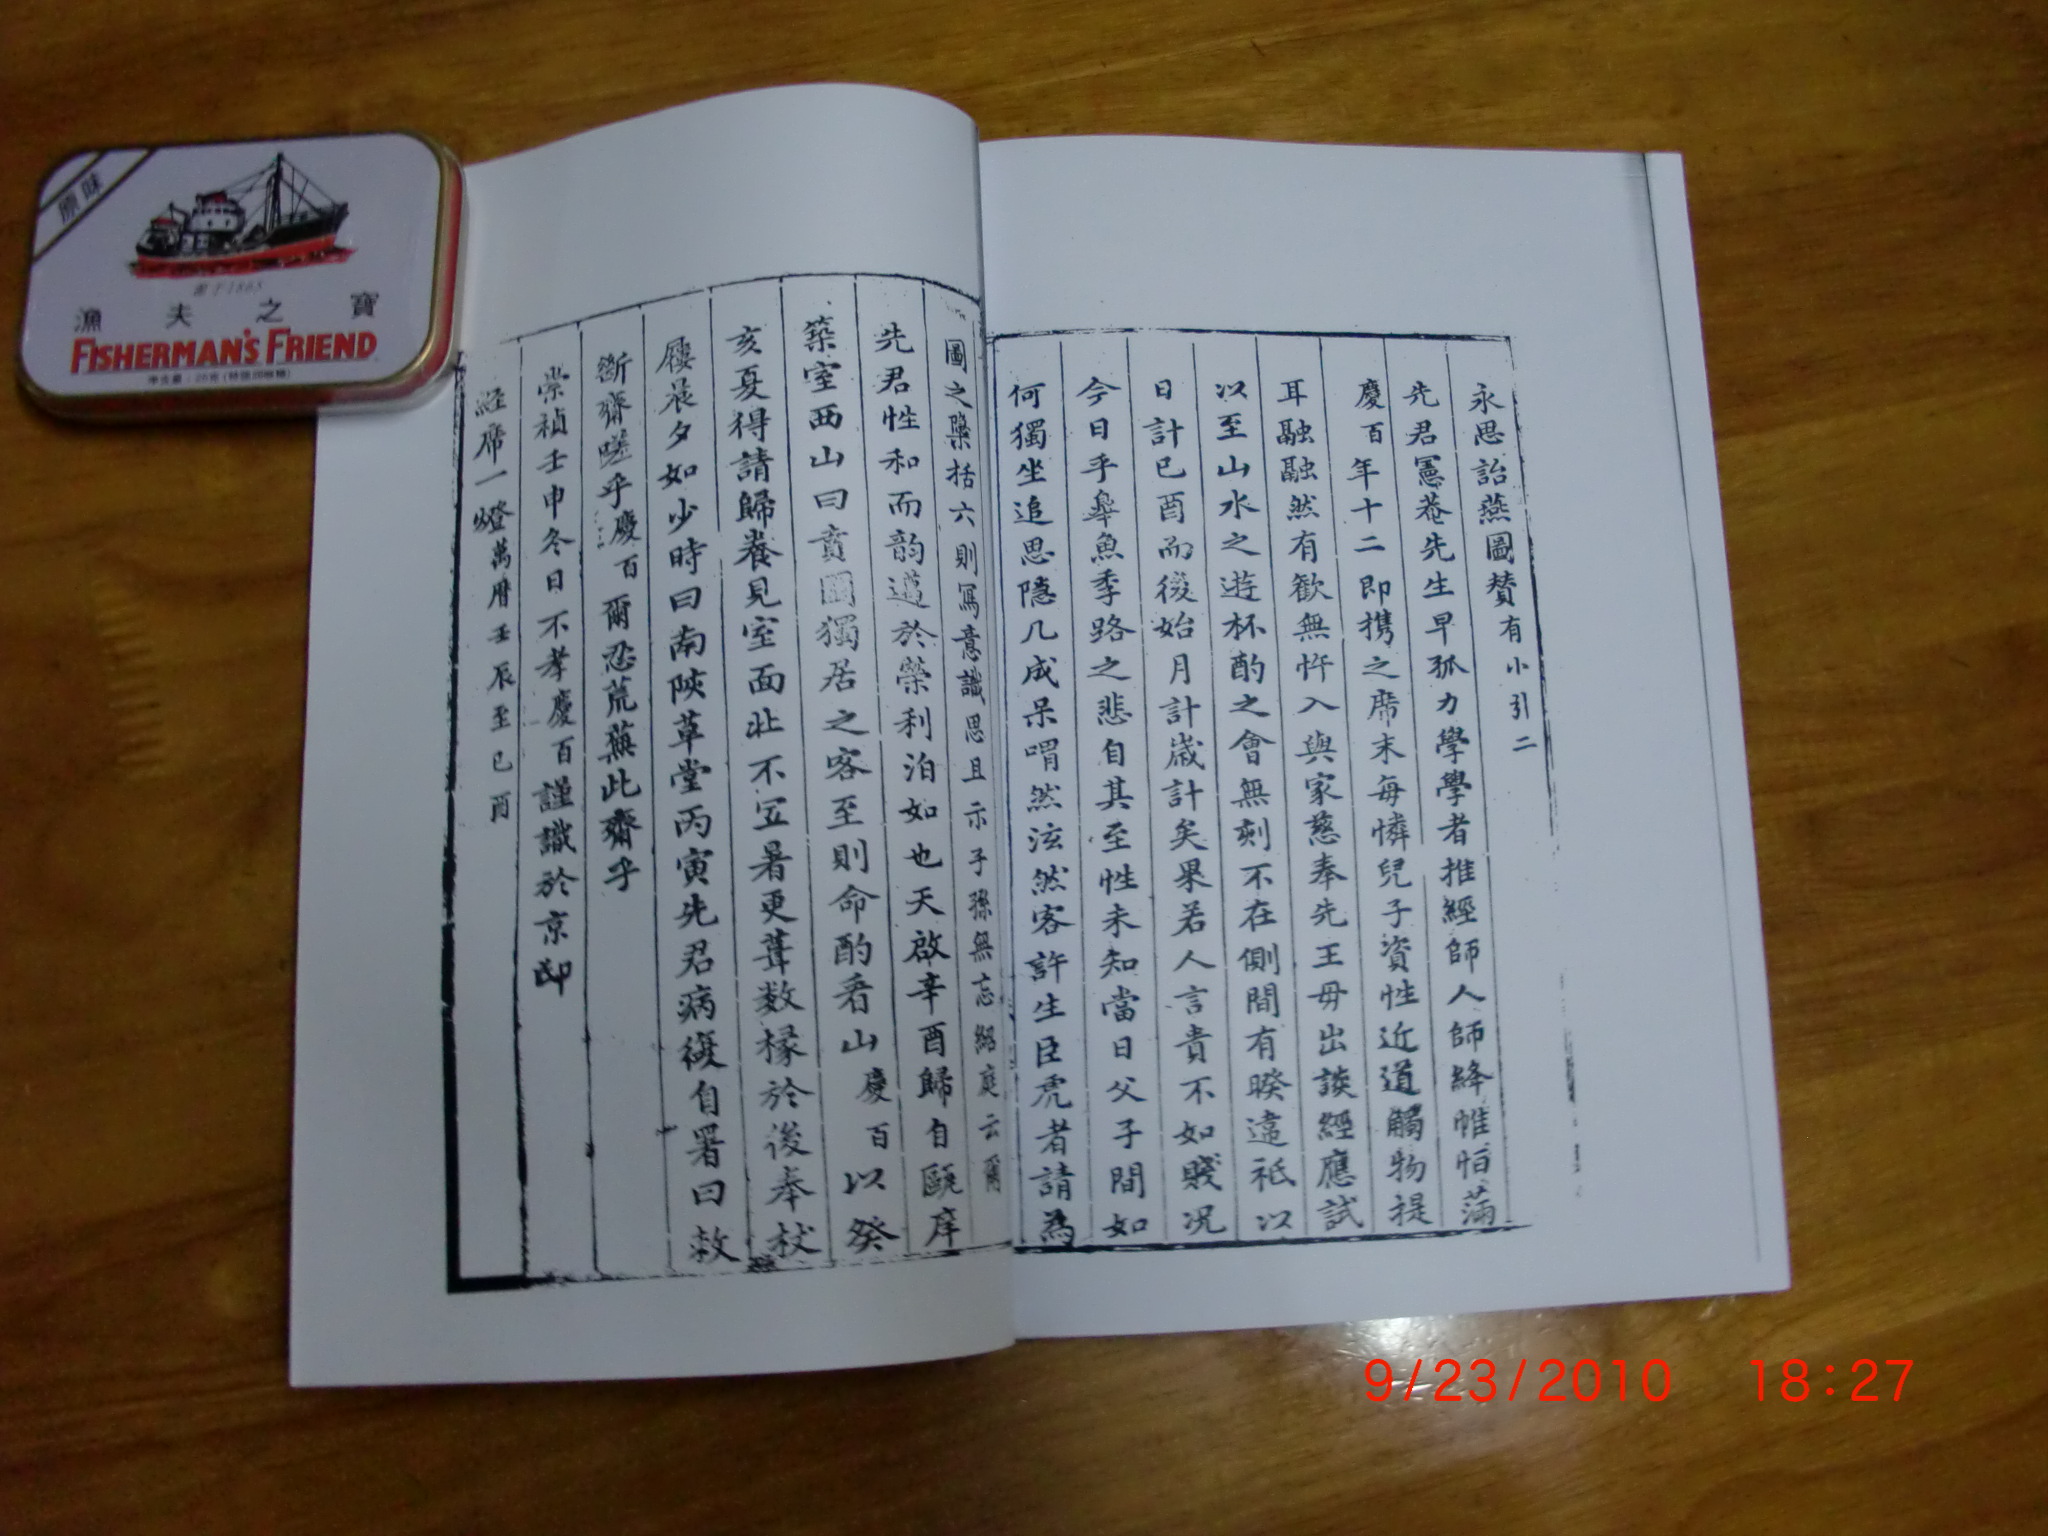 永思詒燕圖贊有小引二
先君憲菴先生早孤力學學者推經師人師絳帷怕滿
慶百年十二即携之席末每憐兒子資性近道觸物提
耳融融然有歡無忤入與家慈奉先王毋出談經應試
以至山水之遊杯酌之會無刻不在側間有暌違祗以
日計已酉而後始月計歲計矣果若人言貴不如賤况
今日乎皋魚季路之悲自其至性未知當日父子間如
何獨坐追思隱几成呆喟然泫然客許生臣虎者請為
圖之檃括六則寫意識思且示子孫無忘紹庭云爾
先君性和而韵邁於榮利泊如也天啟辛酉歸自甌庠
築室西山曰賁園獨居之客至則命酌看山慶百以癸
亥夏得請歸養見室面北不宐暑更葺数椽於後奉杖
屨晨夕如少時曰南陔草堂丙寅先君病後自署曰敕
斷齋嗟乎慶百爾忍荒蕪此齋乎
崇禎壬申冬日不孝慶百謹識於京邸
経席一燈萬曆壬辰至已酉
原味
漁夫之寶
FISHERMAN'S FRIEND
9/23/2010 18:27